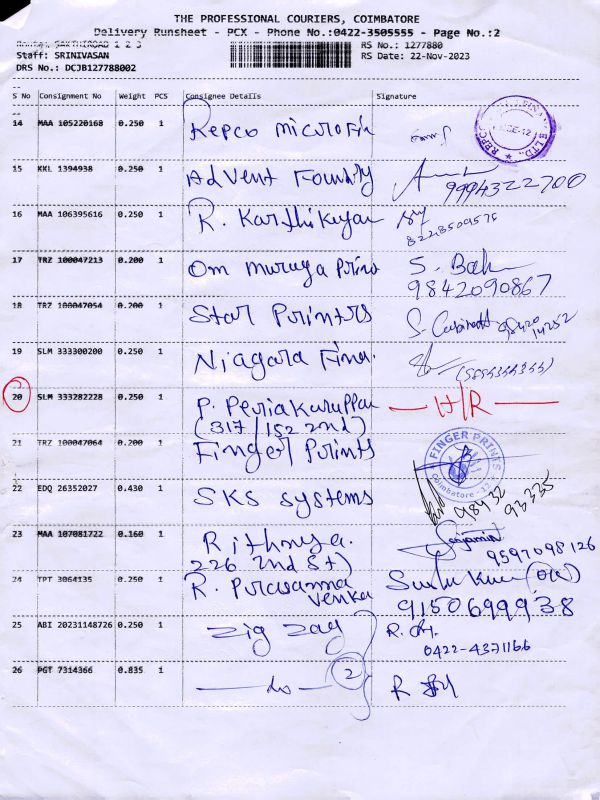 THE PROFESSIONAL COURIERS, COIMBATORE
Delivery Runsheet - PCX - Phone No.:0422-3505555 - Page No.:2
SAKTHIROAD 1 2 3
Staff: SRINIVASAN
RS No.: 1277880
RS Date: 22-Nov-2023
DRS No.: DCJB127788002
S No Consignment No Weight PCS Consignee Details Signature
14 MAA 105220168 0.250 1 Repco Microfin
15 KKL 1394938 0.250 1 Advent Foundry 9994322700
16 MAA 106395616 0.250 1 R. Karthikeyan 8228509575
17 TRZ 100047213 0.200 1 Om muruga Prin S.
9842090867
18 TRZ 100047054 0.200 1 Star Printers S. 98420
14252
19 SLM 333300200 0.250 1 Niagara Fina.
20 SLM 333282228 0.250 1 P. Periakaruppan H/R
(317/152 2nd)
21 TRZ 100047064 0.200 1 Finger Prints
FINGER PRINTS
Coimbatore - 12
22 EDQ 26352027 0.430 1 SKS Systems 98432
93335
23 MAA 107081722 0.160 1 Rithnya. Benjamin
226 2nd St) 9597098126
24 TPT 3064135 0.250 1 R. Prasanna
Venka
9150699938
25 ABI 20231148726 0.250 1 Zig Zag R.
0422-4371166
26 PGT 7314366 0.835 1 — do — 2 R